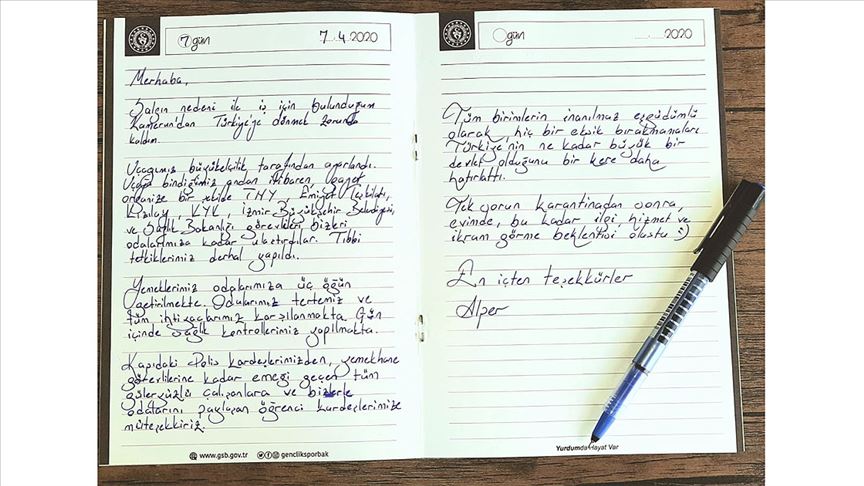 7 gün
7.4.2020
Merhaba,
Salgın nedeni ile iş için bulunduğum
Kamerun'dan Türkiye'ye dönmek zorunda
kaldım.
Uçağımız büyükelçilik tarafından ayarlandı.
Uçağa bindiğimiz andan itibaren, gayet
organize bir şekilde THY, Emniyet Teşkilatı,
Kızılay, KYK, İzmir Büyükşehir Belediyesi,
ve Sağlık Bakanlığı görevlileri bizleri
odalarımıza kadar ulaştırdılar. Tıbbi
tetkiklerimiz derhal yapıldı.
Yemeklerimiz odalarımıza üç öğün
getirilmekte. Odalarımız tertemiz ve
tüm ihtiyaçlarımız karşılanmakta. Gün
içinde sağlık kontrollerimiz yapılmakta.
Kapıdaki Polis kardeşlerimizden, yemekhane
görevlilerine kadar emeği geçen tüm
güleryüzlü çalışanlara ve bizlerle
odalarını paylaşan öğrenci kardeşlerimize
müteşekkiriz.
www.gsb.gov.tr
gencliksporbak
gün
2020
Tüm birimlerin inanılmaz eşgüdümlü
olarak, hiç bir eksik bırakmamaları
Türkiye'nin ne kadar büyük bir
devlet olduğunu bir kere daha
hatırlattı.
Tek sorun karantinadan sonra,
evimde, bu kadar ilgi, hizmet ve
ikram görme beklentisi oluştu :)
En içten teşekkürler
Alper
Yurdumda Hayat Var